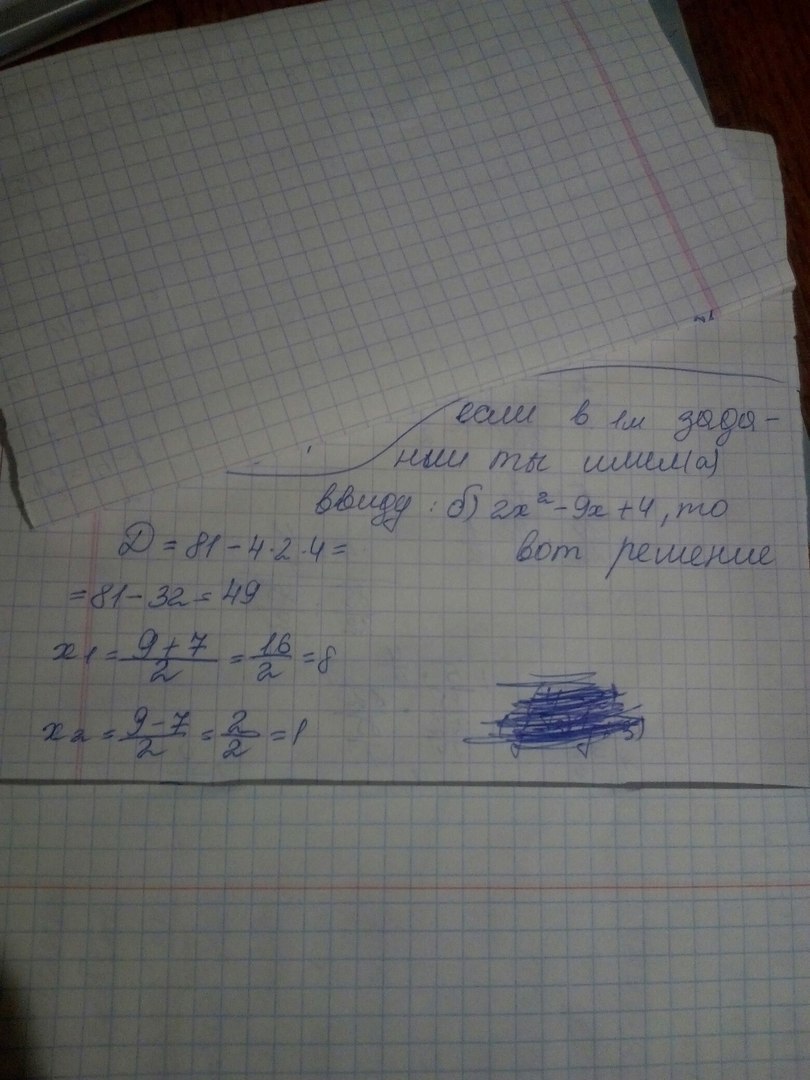 если в 1м зада-
нии ты имел(а)
ввиду: б) 2x²-9x+4, то
вот решение
D = 81-4·2·4=
=81-32=49
x1 = \frac{9+7}{2} = \frac{16}{2} = 8
x2 = \frac{9-7}{2} = \frac{2}{2} = 1